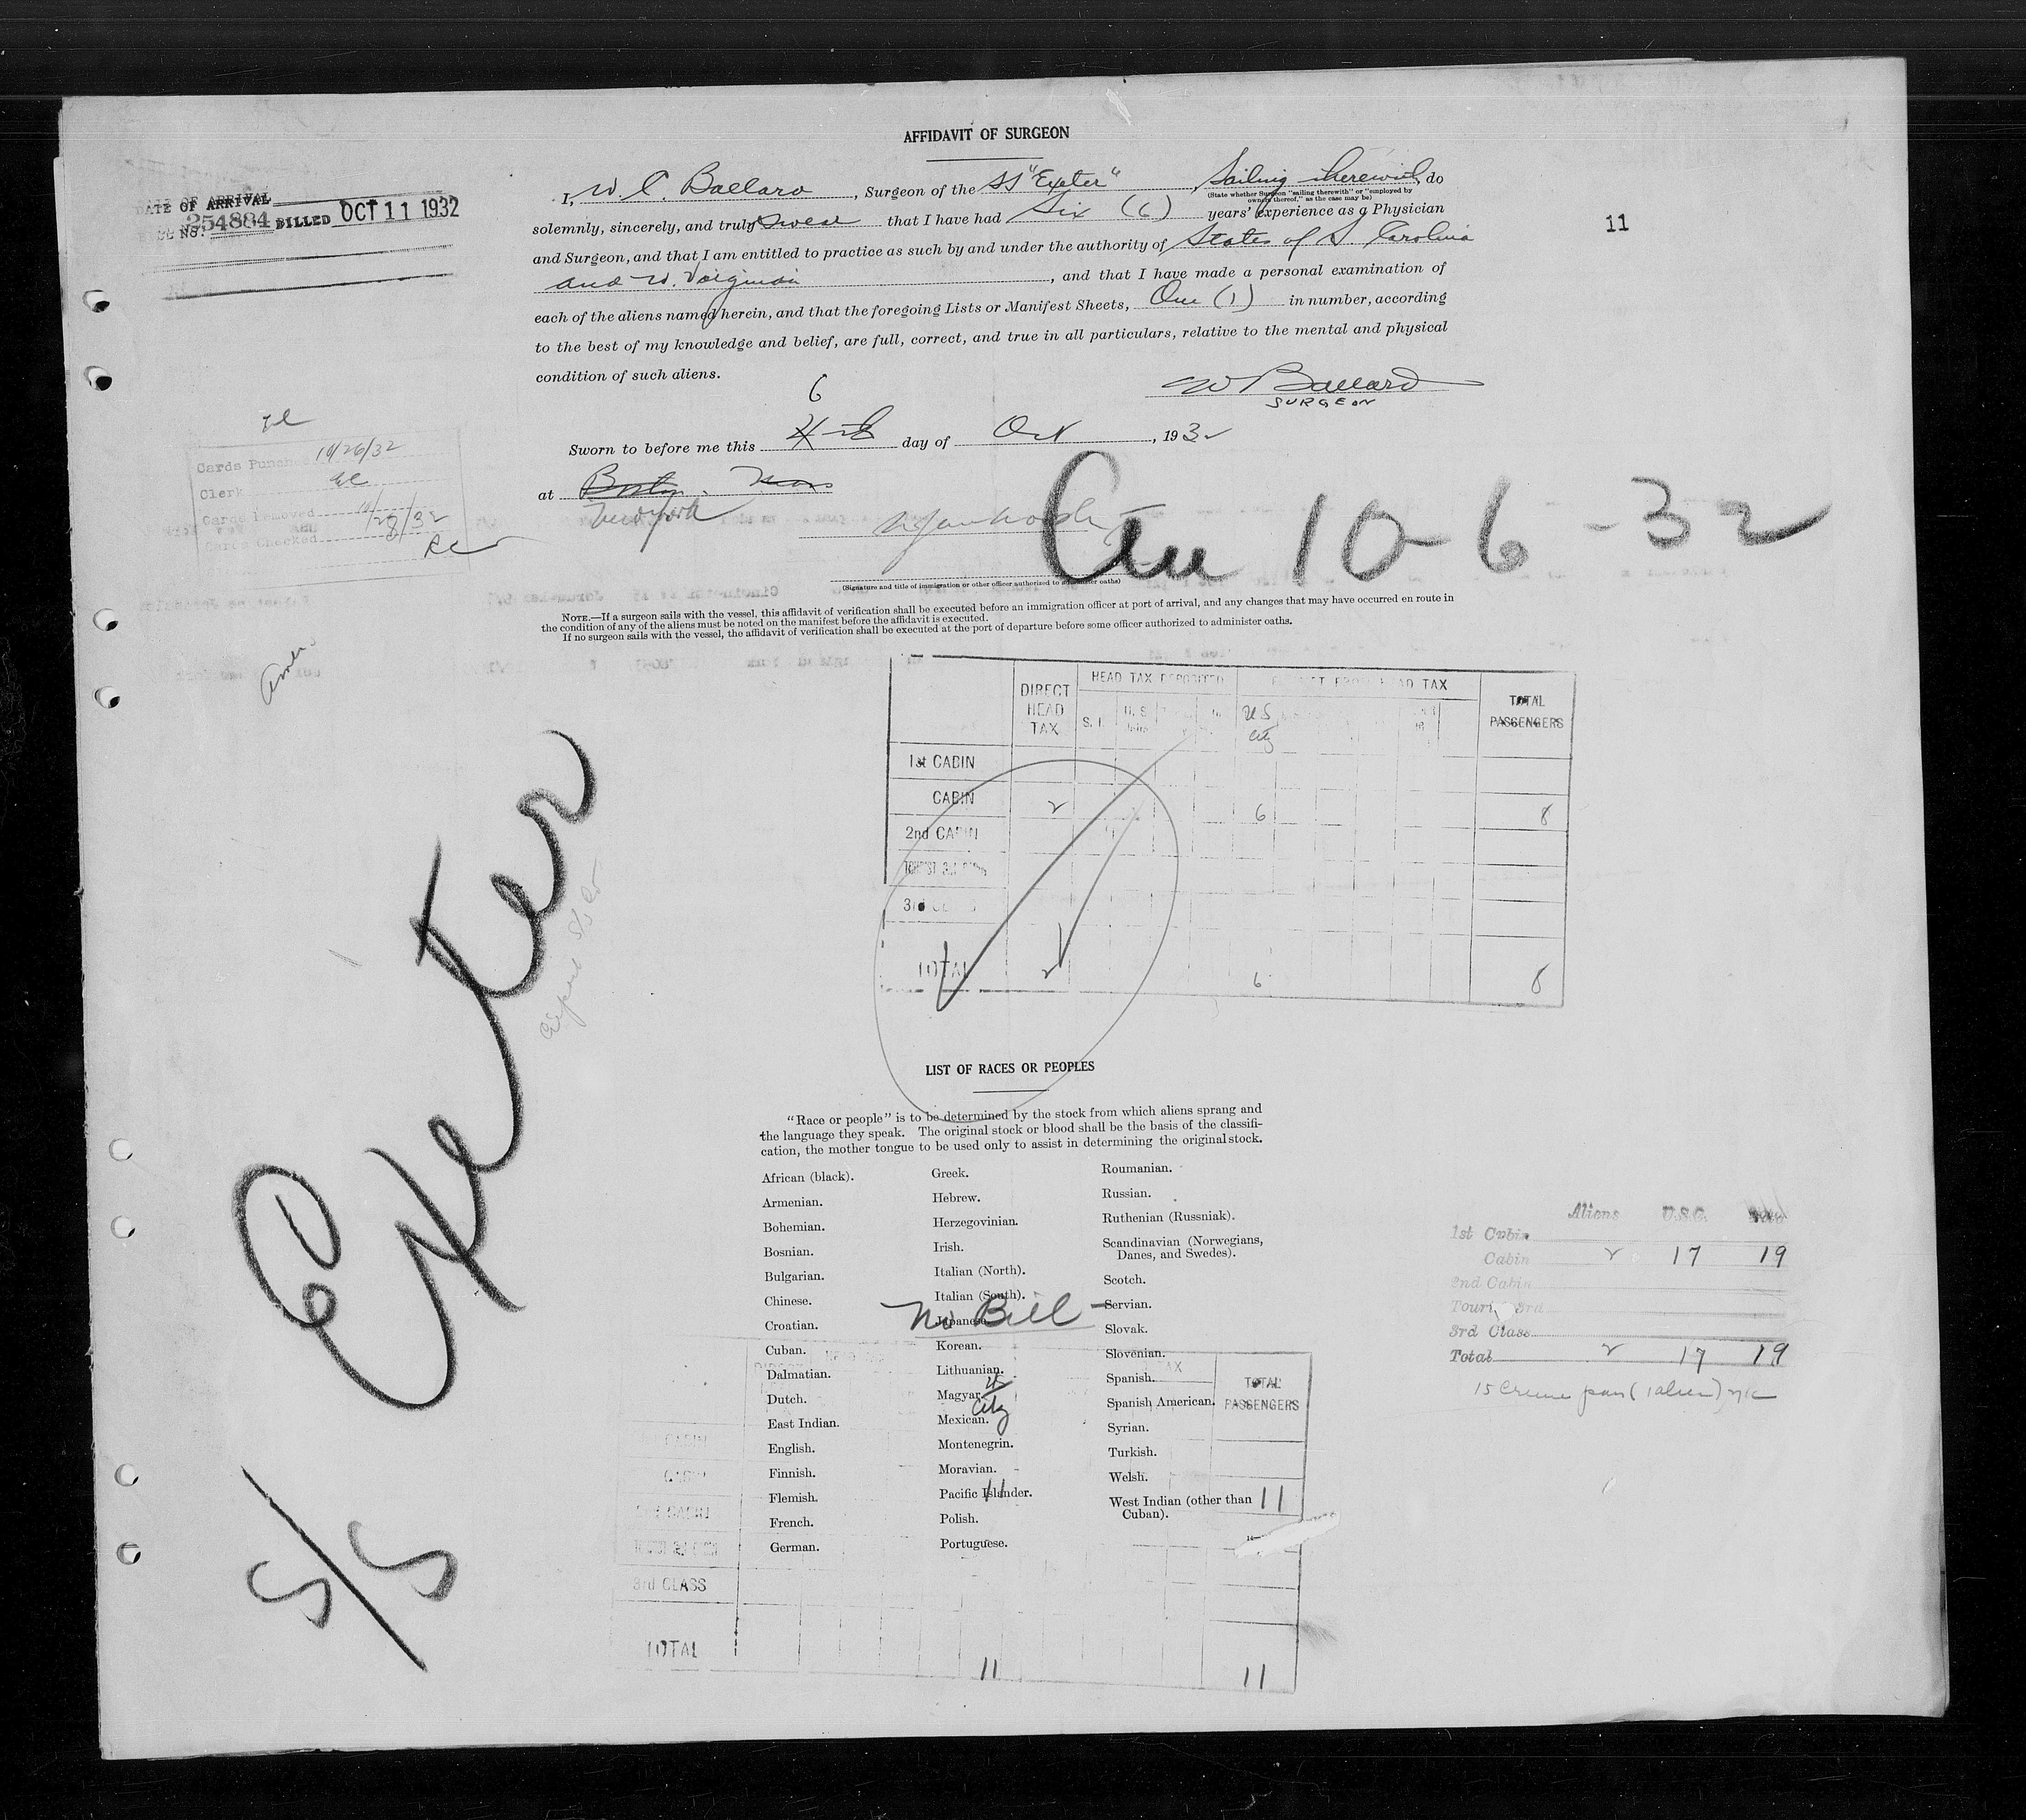 AFFIDAVIT OF SURGEON
DATE OF ARRIVAL
254884 BILLED OCT 11 1932
11
I, W. C. Ballard, Surgeon of the SS "Exeter", Sailing therewith, do
(State whether Surgeon "sailing therewith" or "employed by
owners thereof," as the case may be)
solemnly, sincerely, and truly Swear that I have had Six (6) years' experience as a Physician
and Surgeon, and that I am entitled to practice as such by and under the authority of States of S. Carolina
and W. Virginia, and that I have made a personal examination of
each of the aliens named herein, and that the foregoing Lists or Manifest Sheets, One (1) in number, according
to the best of my knowledge and belief, are full, correct, and true in all particulars, relative to the mental and physical
condition of such aliens.
W Ballard
SURGEON
6
Sworn to before me this 4th day of Oct, 1932
at Boston. Mass
New York
Cards Punched 10/26/32
Clerk
Cards Removed
Cards Checked 28/32
10-6-32
(Signature and title of immigration or other officer authorized to administer oaths)
NOTE.—If a surgeon sails with the vessel, this affidavit of verification shall be executed before an immigration officer at port of arrival, and any changes that may have occurred en route in
the condition of any of the aliens must be noted on the manifest before the affidavit is executed.
If no surgeon sails with the vessel, the affidavit of verification shall be executed at the port of departure before some officer authorized to administer oaths.
DIRECT HEAD TAX
HEAD TAX DEPOSITED
EXEMPT FROM HEAD TAX
TOTAL PASSENGERS
S. I. U. S. U S Citz
1st CABIN
CABIN 2 6 8
2nd CABIN
TOURIST 3rd CABIN
3rd CLASS
TOTAL 2 6 8
S/S Exeter
LIST OF RACES OR PEOPLES
"Race or people" is to be determined by the stock from which aliens sprang and
the language they speak. The original stock or blood shall be the basis of the classifi-
cation, the mother tongue to be used only to assist in determining the original stock.
African (black).
Armenian.
Bohemian.
Bosnian.
Bulgarian.
Chinese.
Croatian.
Cuban.
Dalmatian.
Dutch.
East Indian.
English.
Finnish.
Flemish.
French.
German.
Greek.
Hebrew.
Herzegovinian.
Irish.
Italian (North).
Italian (South).
Japanese.
Korean.
Lithuanian.
Magyar.
Mexican.
Montenegrin.
Moravian.
Pacific Islander.
Polish.
Portuguese.
Roumanian.
Russian.
Ruthenian (Russniak).
Scandinavian (Norwegians,
Danes, and Swedes).
Scotch.
Servian.
Slovak.
Slovenian.
Spanish.
Spanish American.
Syrian.
Turkish.
Welsh.
West Indian (other than
Cuban).
No Bill
TAX
TOTAL PASSENGERS
US Citz
CABIN
CABIN 11 11
2nd CABIN
3rd CLASS
TOTAL 11 11
Aliens U.S.C. Total
1st Cabin
Cabin 2 17 19
2nd Cabin
Tourist 3rd
3rd Class
Total 2 17 19